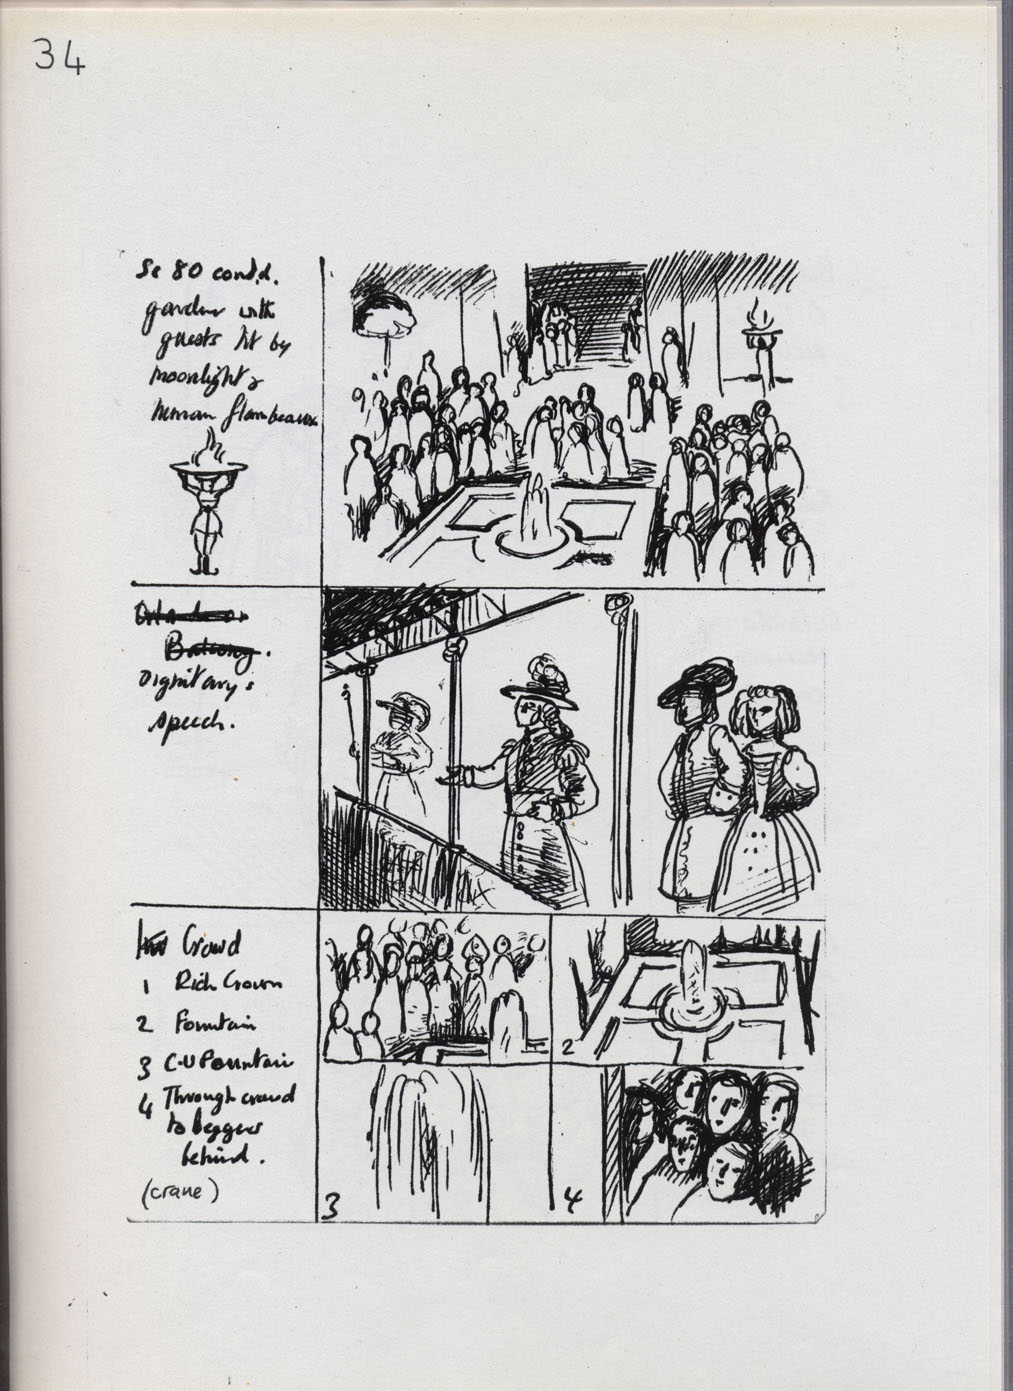 34
Sc 80 contd.
garden with
guests lit by
moonlight &
human flambeaux
Balcony.
Dignitary's
speech.
Crowd
1 Rich Crown
2 Fountain
3 C-U Fountain
4 Through crowd
to beggers
behind.
(crane)
2
3
4